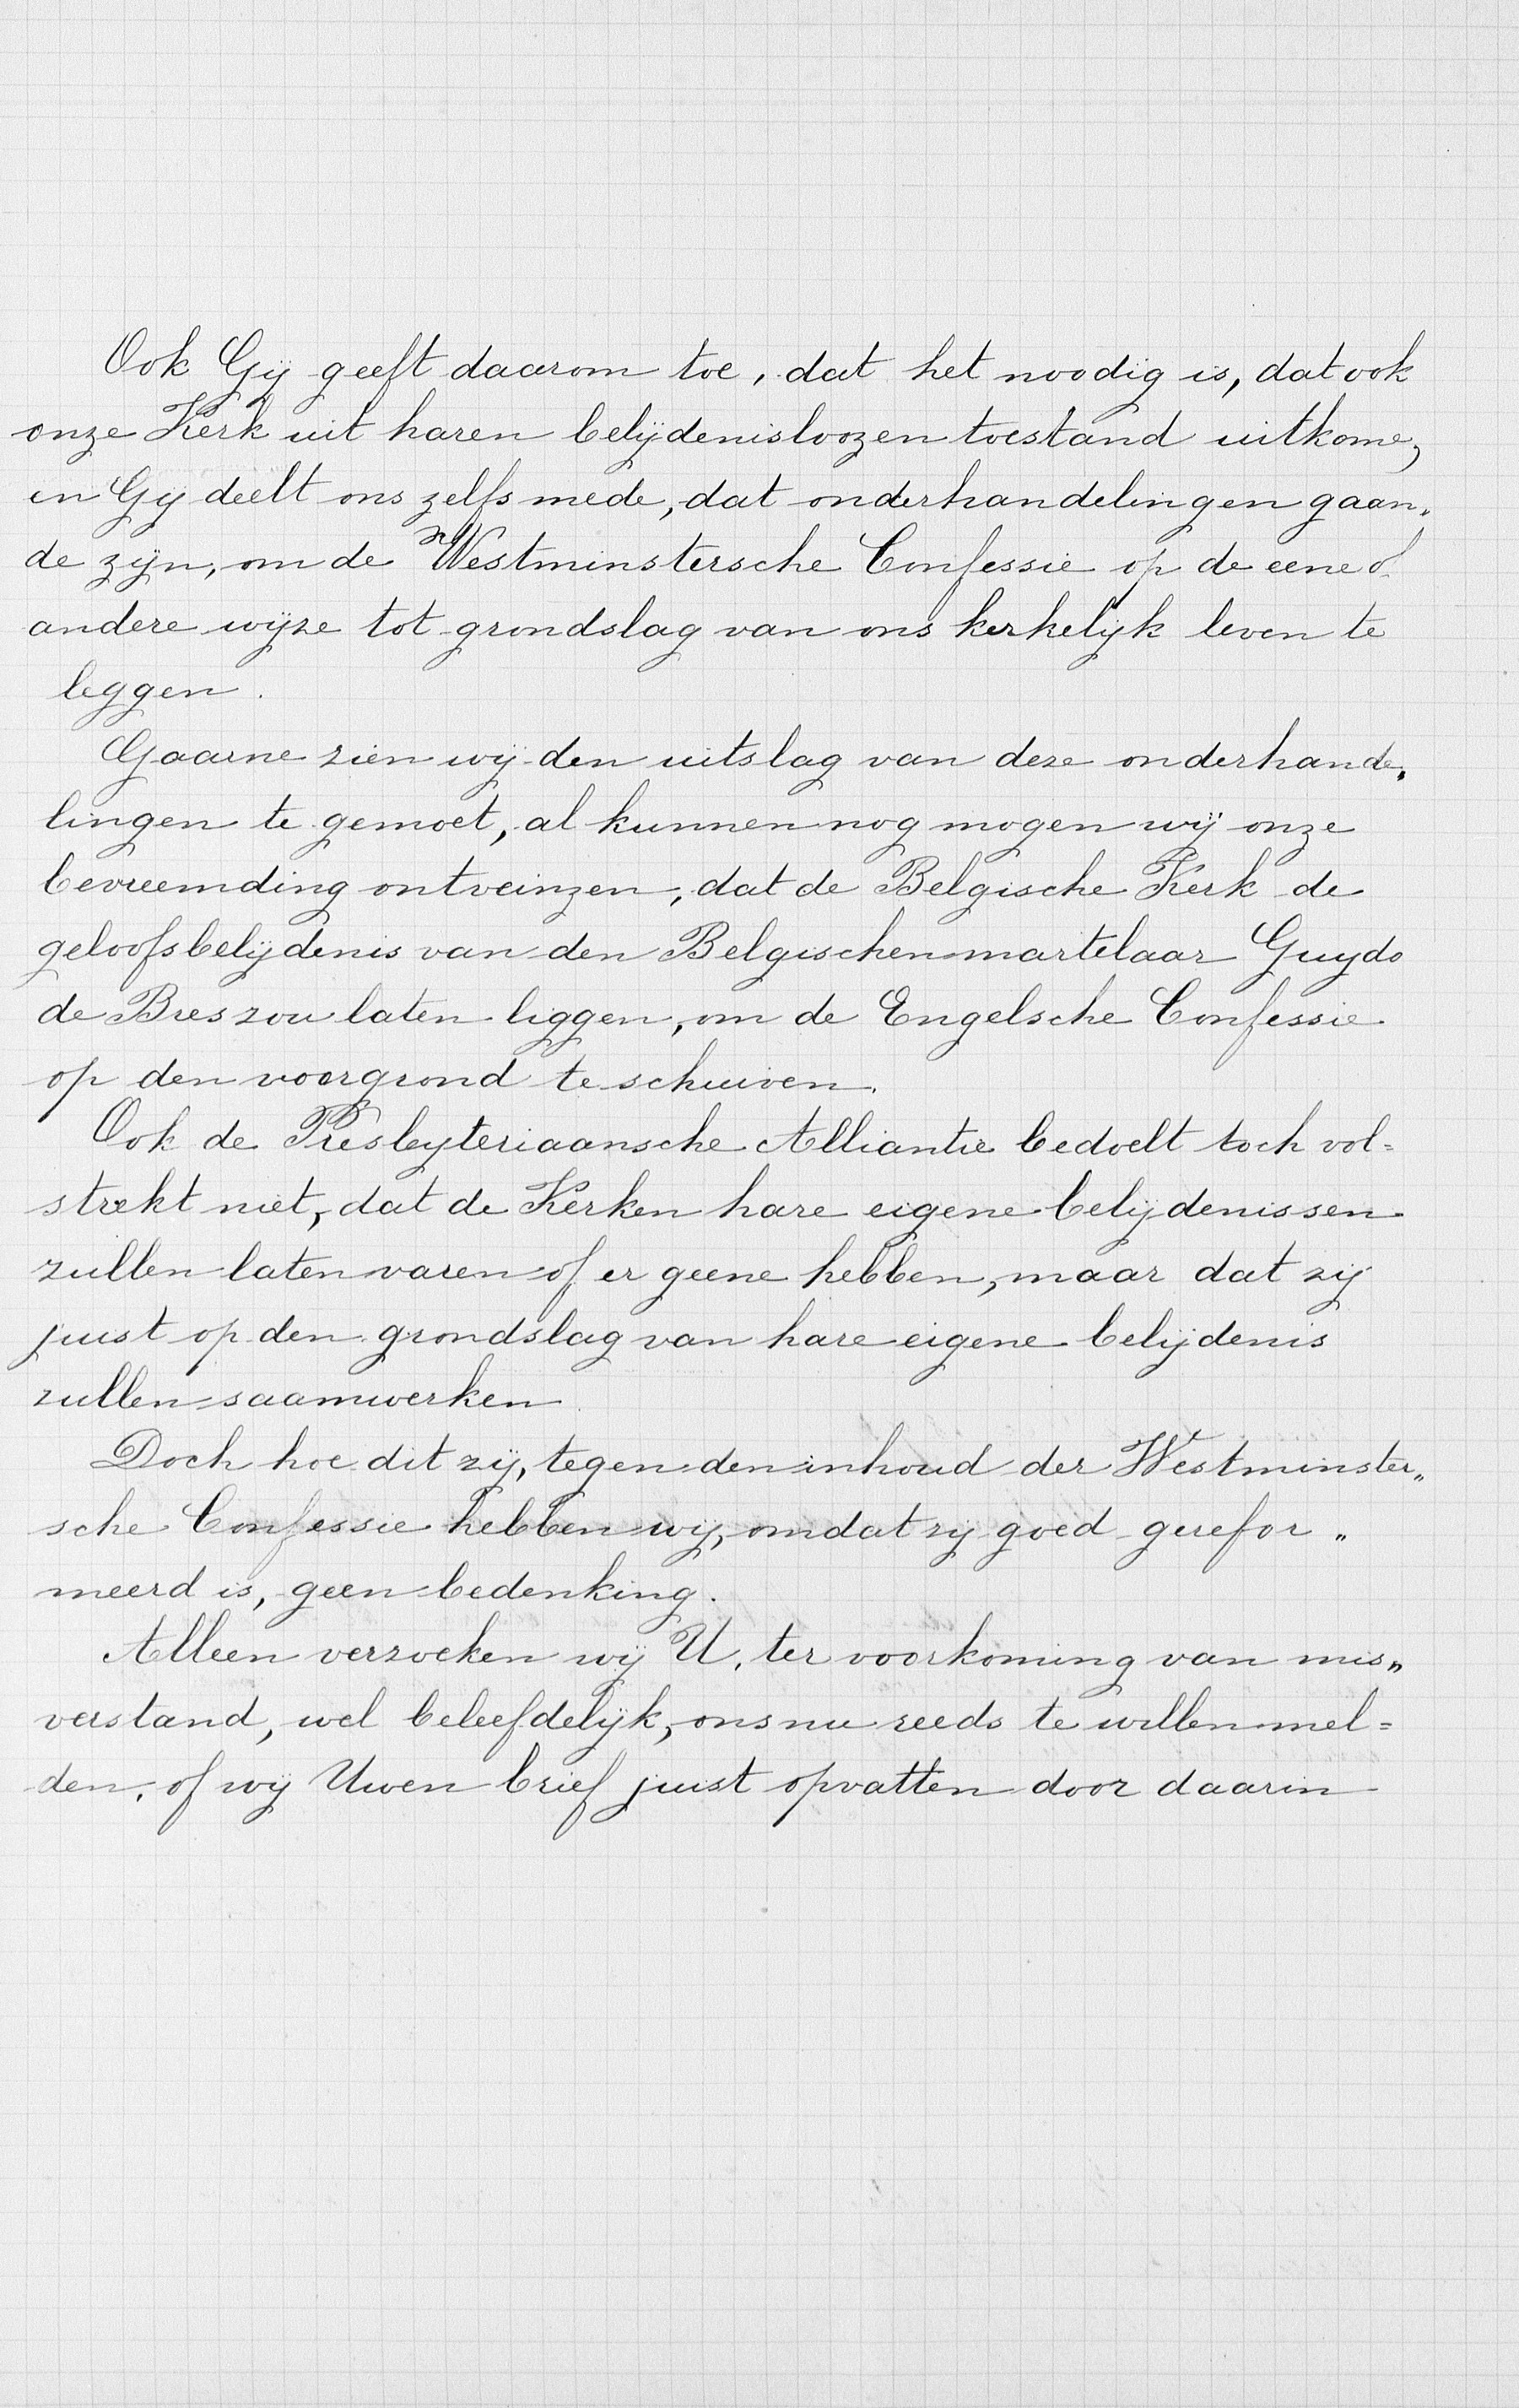 Ook Gij geeft daarom toe, dat het noodig is, dat ook
onze Kerk uit haren belijdenisloozen toestand uitkome,
en Gij deelt ons zelfs mede, dat onderhandelingen gaan„
de zijn, om de Westminstersche Confessie op de eene of
andere wijze tot grondslag van ons kerkelijk leven te
leggen.
Gaarne zien wij den uitslag van deze onderhande„
lingen te gemoet, al kunnen nog mogen wij onze
bevreemding ontveinzen, dat de Belgische Kerk de
geloofsbelijdenis van den Belgischen martelaar Guydo
de Bres zou laten liggen, om de Engelsche Confessie
op den voorgrond te schuiven.
Ook de Presbyteriaansche Alliantie bedoelt toch vol=
strekt niet, dat de Kerken hare eigene belijdenissen
zullen laten varen of er geene hebben, maar dat zij
juist op den grondslag van hare eigene belijdenis
zullen saamwerken.
Doch hoe dit zij, tegen den inhoud der Westminster„
sche Confessie hebben wij, omdat zij goed gerefor„
meerd is, geen bedenking.
Alleen verzoeken wij U, ter voorkoming van mis„
verstand, wel beleefdelijk, ons nu reeds te willen mel=
den, of wij Uwen brief juist opvatten door daarin